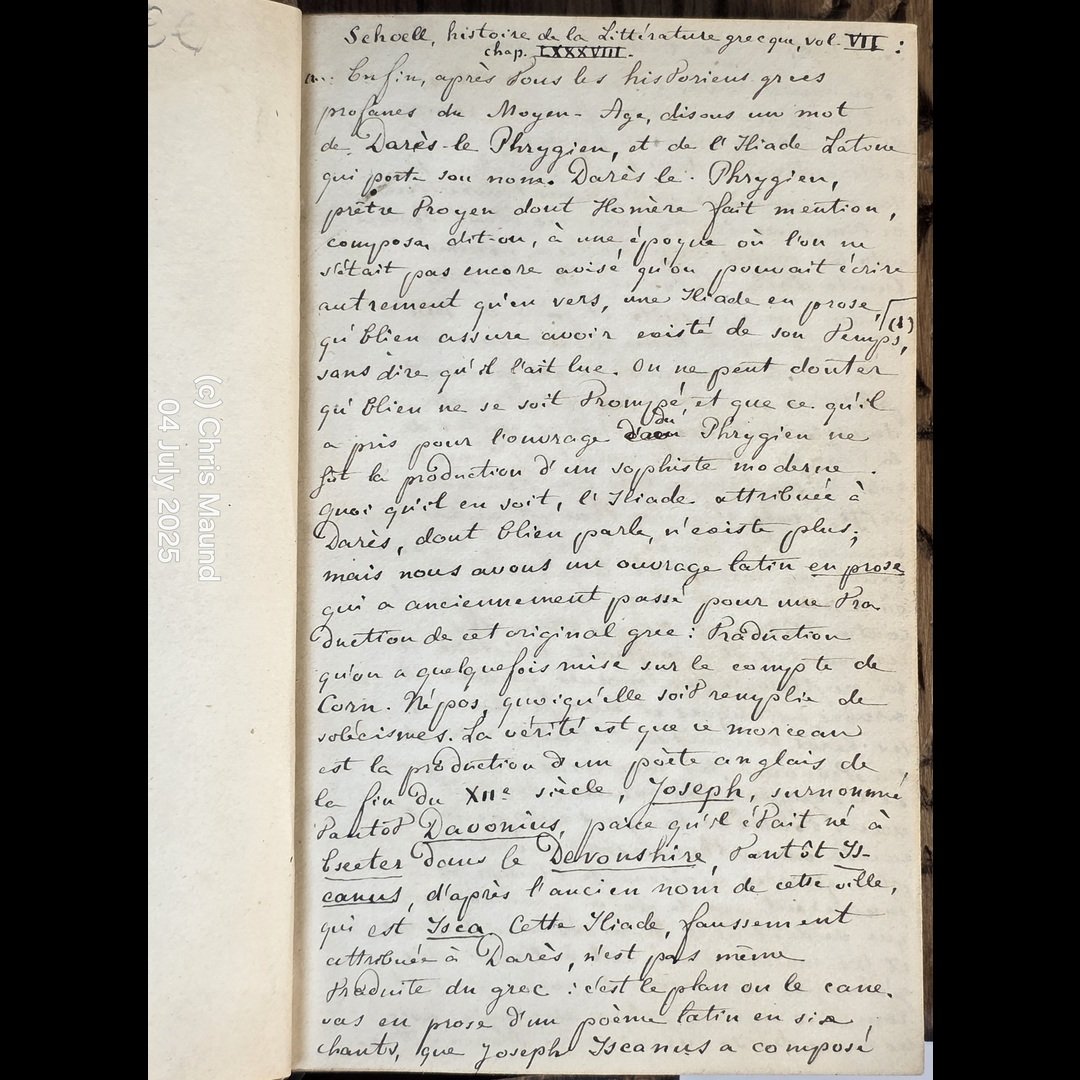 Schoell, histoire de la Littérature grecque, vol. VII :
chap. LXXXVIII.
Enfin, après tous les historiens grecs
profanes du Moyen-Age, disons un mot
de Darès-le Phrygien, et de l'Iliade Latine
qui porte son nom. Darès-le-Phrygien,
prêtre troyen dont Homère fait mention,
composa dit-on, à une époque où l'on ne
s'était pas encore avisé qu'on pouvait écrire
autrement qu'en vers, une Iliade en prose, (1)
qu'Elien assure avoir existé de son temps,
sans dire qu'il l'ait lue. On ne peut douter
qu'Elien ne se soit trompé, et que ce qu'il
a pris pour l'ouvrage du Phrygien ne
fût la production d'un sophiste moderne.
Quoi qu'il en soit, l'Iliade attribuée à
Darès, dont Elien parle, n'existe plus;
mais nous avons un ouvrage latin en prose
qui a anciennement passé pour une tra
duction de cet original grec : traduction
qu'on a quelquefois mise sur le compte de
Corn. Népos, quoiqu'elle soit remplie de
solécismes. La vérité est que ce morceau
est la production d'un poète anglais de
la fin du XIIe siècle, Joseph, surnommé
tantôt Davonius, parce qu'il était né à
Exeter dans le Devonshire, tantôt Is-
canus, d'après l'ancien nom de cette ville,
qui est Isca. Cette Iliade, faussement
attribuée à Darès, n'est pas même
traduite du grec : c'est le plan ou le cane-
vas en prose d'un poème latin en six
chants, que Joseph Iscanus a composé
(c) Chris Maund
04 July 2025